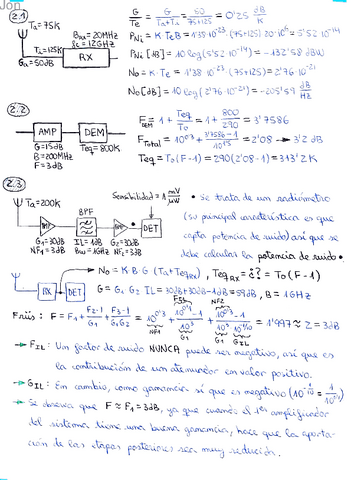 Jon
2.1
Ta=75K
BRX=20MHz
fc=12GHz
Te=125K
RX
G=50dB
G/Te = G/(Ta+Te) = 50/(75+125) = 0'25 dB/K
PNi = K·Te·B = 1'38·10^-23·(75+125)·20·10^6 = 5'52·10^-14
PNi [dB] = 10 log(5'52·10^-14) = -132'58 dBW
No = K·Te = 1'38·10^-23·(75+125) = 2'76·10^-21
No[dB] = 10 log(2'76·10^-21) = -205'59 dB/Hz
2.2
AMP
DEM
G=15dB
B=200MHz
F=3dB
Teq=800K
FDEM = 1 + Teq/To = 1 + 800/290 = 3'7586
FTotal = 10^0'3 + (3'7586-1)/10^1'5 = 2'08 → 3'2 dB
Teq = To(F-1) = 290(2'08-1) = 313'2K
2.3
Ta=200K
Sensibilidad = 1 mV/μW
BPF
DET
G1=30dB
NF1=3dB
IL=1dB
BW=1GHz
G2=30dB
• Se trata de un radiómetro
(su principal característica es que
capta potencia de ruido) así que se
debe calcular la potencia de ruido •
RX
DET
No = K·B·G (Ta+TeqRX), TeqRX = ¿? = To(F-1)
G = G1 G2 IL = 30dB+30dB-1dB = 59dB, B = 1GHz
Friis: F = F1 + (F2-1)/G1 + (F3-1)/(G1G2) = 10^0'3 + (10^0'1-1)/10^3 + (10^0'3-1)/(10^3·1/10^0'1) = 1'997 ≈ 2 = 3dB
→ FIL: Un factor de ruido NUNCA puede ser negativo, así que es
la contribución de un atenuador en valor positivo.
→ GIL: En cambio, como ganancia sí que es negativo (10^-1/10 = 1/10^0'1)
→ Se observa que F ≈ F1 = 3dB, ya que cuando el 1er amplificador
del sistema tiene una buena ganancia, hace que la aporta-
ción de las etapas posteriores sea muy reducida.